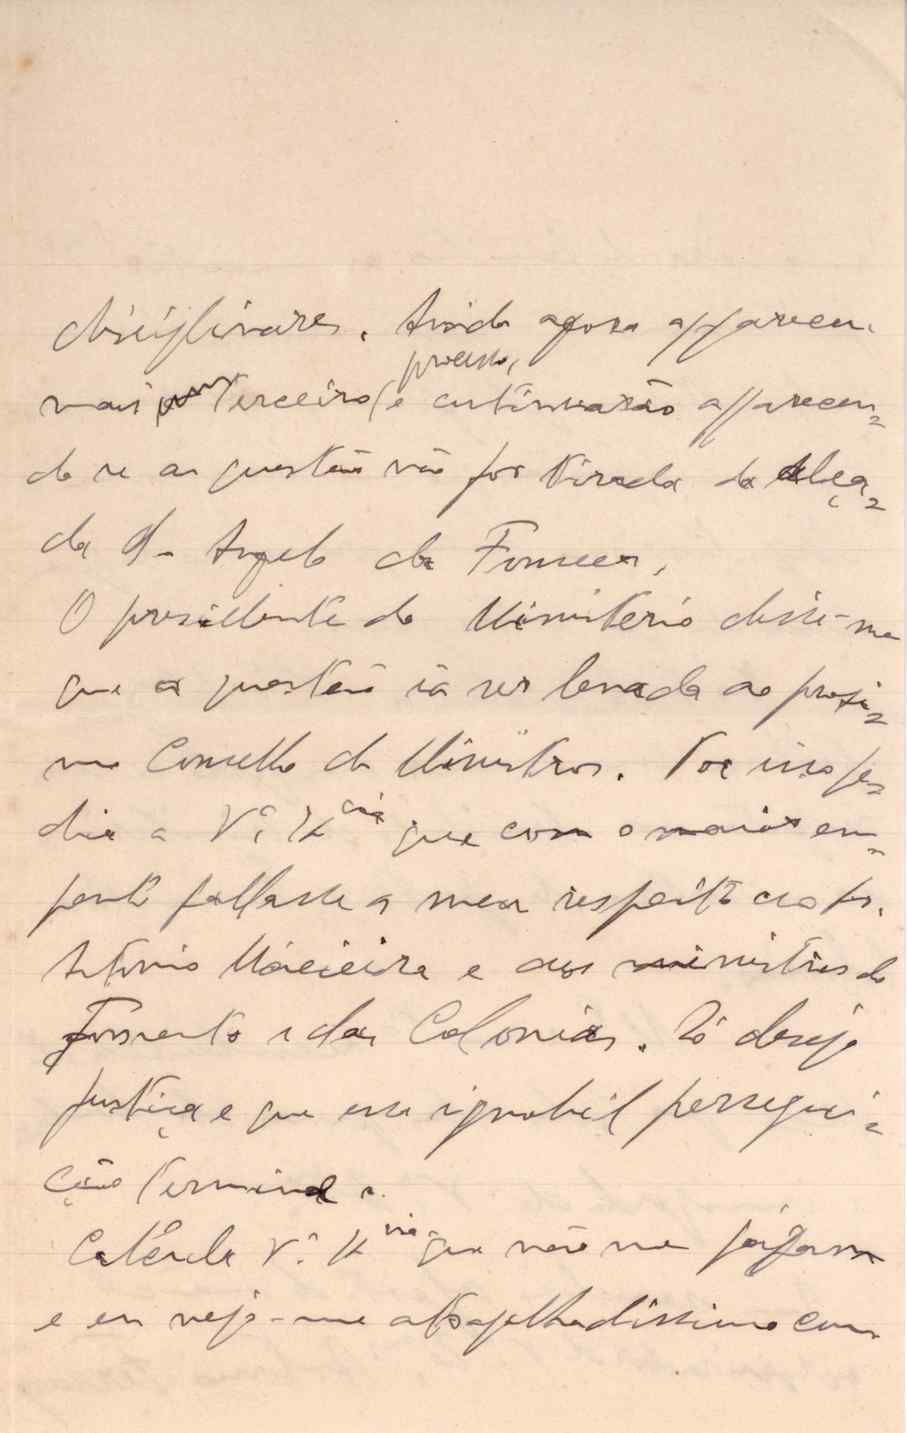 disciplinares. Ainda agora appareceu
mais um terceiro processo, e continuarão apparecen-
do se as questão não for tirada da alça-
da d. Angelo da Fonseca.
O presidente do Ministerio disse-me
que a questão ia ser levada ao proxi-
mo Conselho de Ministros. Por isso pe-
dia a V.ª Ex.cia que com o maior em-
penho fallasse a meu respeito ao Dr.
Antonio Macieira e aos ministros do
Fomento e das Colonias. Só desejo
justiça e que essa ignobil persegui-
ção termine.
Calcule V.ª Ex.cia que não me pagam
e eu vejo-me atrapalhadissimo com